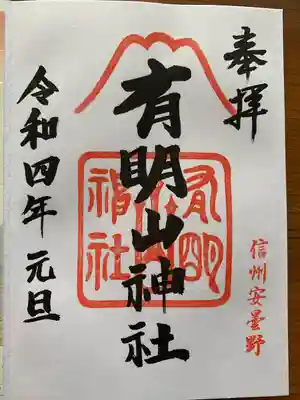 奉拝
信州安曇野
有明山神社
有明山神社
令和四年 元旦